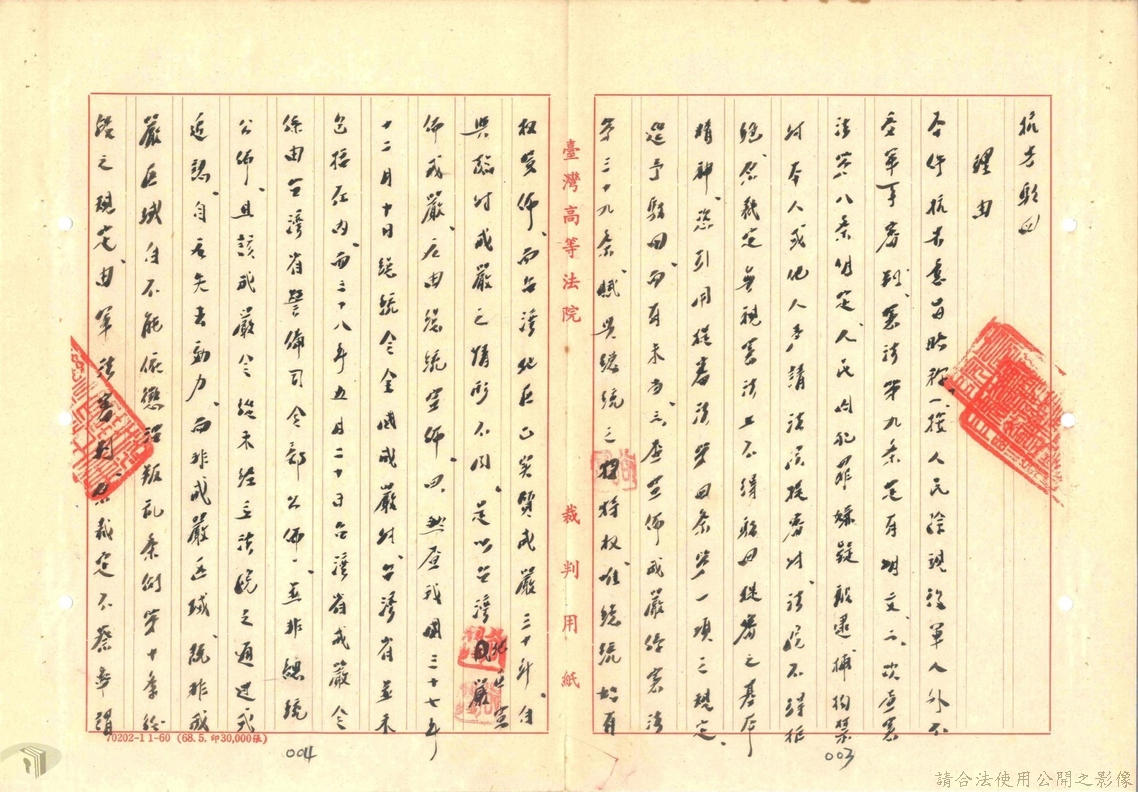 抗告駁回
理由
本件抗告意旨略稱：一、按人民除現役軍人外不
受軍事審判、憲法第九條定有明文、二、次查憲
法第八條明定、人民因犯罪嫌疑被逮捕拘禁
時本人或他人聲請法院提審時、法院不得拒
絕、原裁定無視憲法上不得駁回提審之基本
精神、恣引用提審法第四條第一項之規定、
逕予駁回、而有未當、三、查宣佈戒嚴依憲法
第三十九條、賦與總統之特權、惟總統始有
權宣佈、而台灣地區已實質戒嚴三十年、自
與臨時戒嚴之情形不同、是以台灣地區宣
佈戒嚴、應由總統宣佈、四、然查我國三十七年
十二月十日總統令全國戒嚴時、台灣省並未
包括在內、而三十八年五月二十日台灣省戒嚴令
係由台灣省警備司令部公佈、並非總統
公佈、且該戒嚴令從未經立法院之通過或
追認、自應失去効力、而非戒嚴區域、既非戒
嚴區域自不能依懲治叛亂條例第十條後
段之規定、由軍法審判、原裁定不察率謂
臺灣高等法院 裁判用紙
70202-11-60 (68.5.印30,000張)
004
003
請合法使用公開之影像